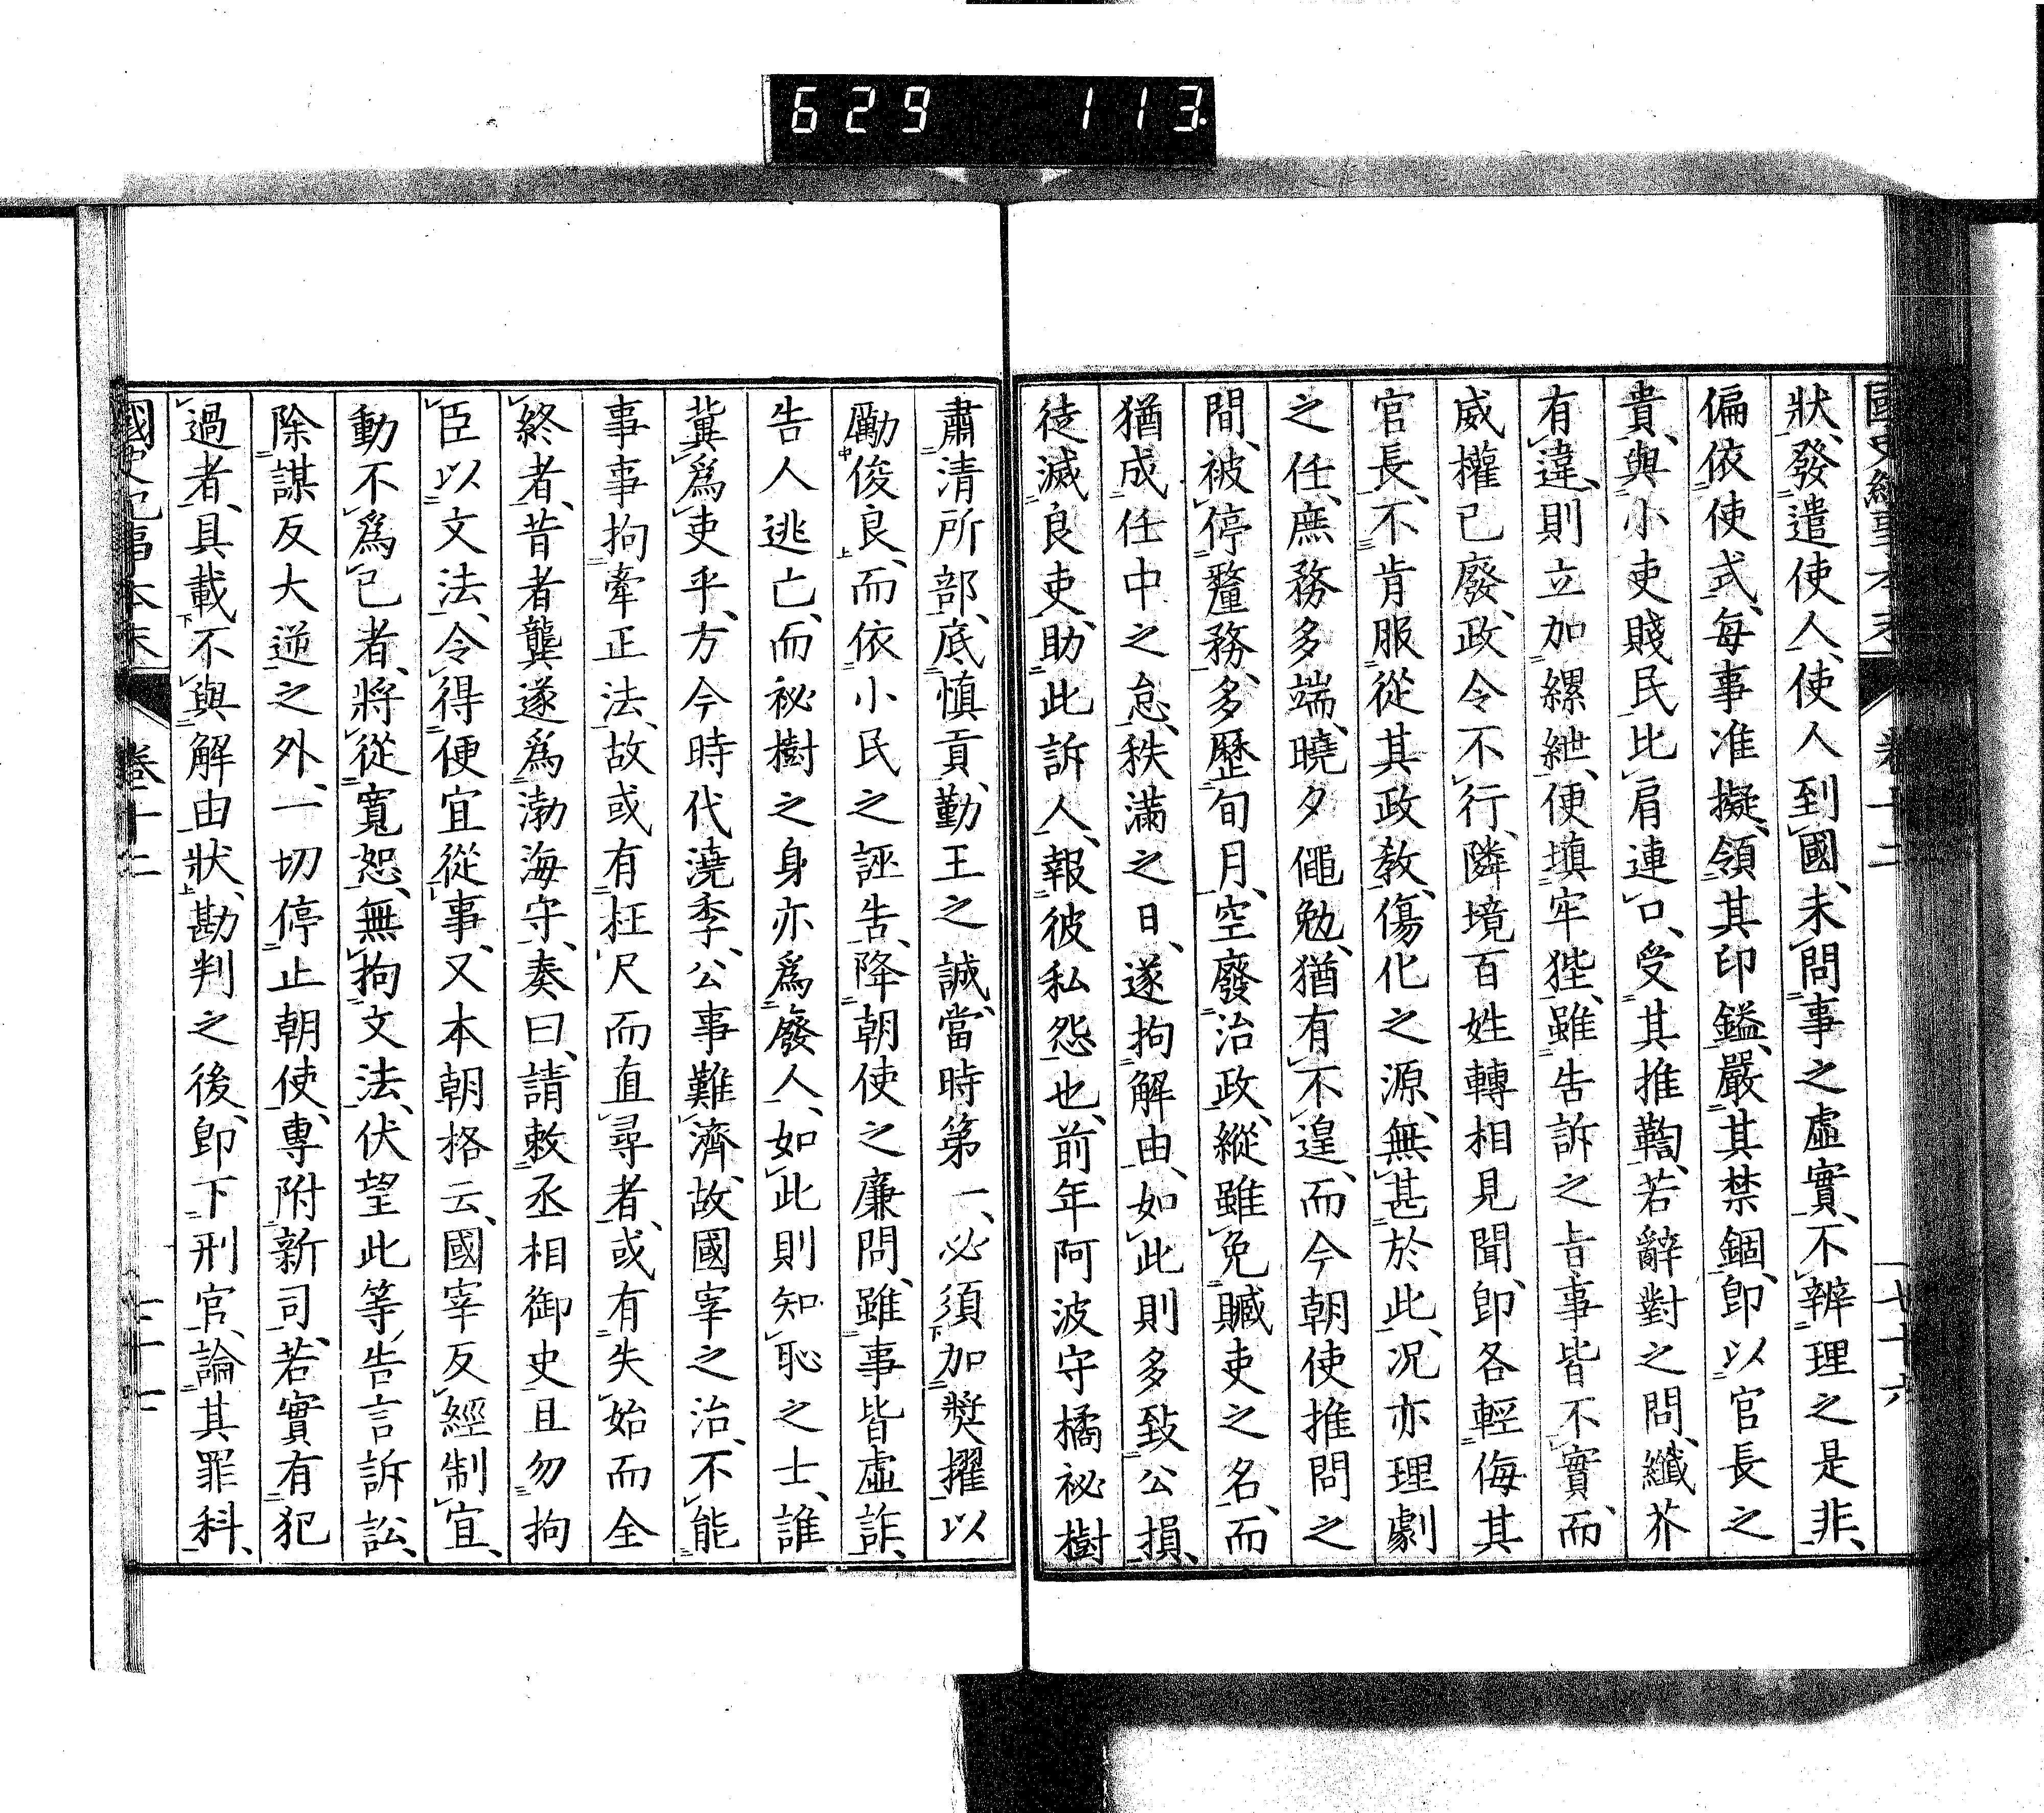 629 113
國史紀事本末 卷十二
狀、發遣使人、使人到國、未問事之虛實、不辨理之是非、
偏依使式、每事准擬、領其印鎰、嚴其禁錮、卽以官長之
貴、與小吏賤民比肩連口、受其推鞫、若辭對之問、纖芥
有違、則立加縲紲、便塡牢狴、雖告訴之旨事皆不實、而
威權已廢、政令不行、隣境百姓轉相見聞、卽各輕侮其
官長、不肯服從其政教、傷化之源、無甚於此、況亦理劇
之任、庶務多端、曉夕僶勉、猶有不遑、而今朝使推問之
間、被停釐務、多歷旬月、空廢治政、縱雖免贓吏之名、而
猶成任中之怠、秩滿之日、遂拘解由、如此則多致公損、
徒滅良吏、助此訴人、報彼私怨也、前年阿波守橘祕樹
肅清所部、底愼貢、勤王之誠、當時第一、必須加奬擢以
勵俊良、而依小民之誣吿、降朝使之廉問、雖事皆虛詐、
告人逃亡、而祕樹之身亦爲廢人、如此則知恥之士、誰
冀爲吏乎、方今時代澆季、公事難濟、故國宰之治、不能
事事拘牽正法、故或有枉尺而直尋者、或有失始而全
終者、昔者龔遂爲渤海守、奏曰、請敕丞相御史且勿拘
臣以文法、令得便宜從事、又本朝格云、國宰反經制宜、
動不爲己者、將從寬恕、無拘文法、伏望此等告言訴訟、
除謀反大逆之外、一切停止朝使、專附新司、若實有犯
過者、具載不與解由狀、勘判之後、卽下刑官、論其罪科、
國史紀事本末 卷十二